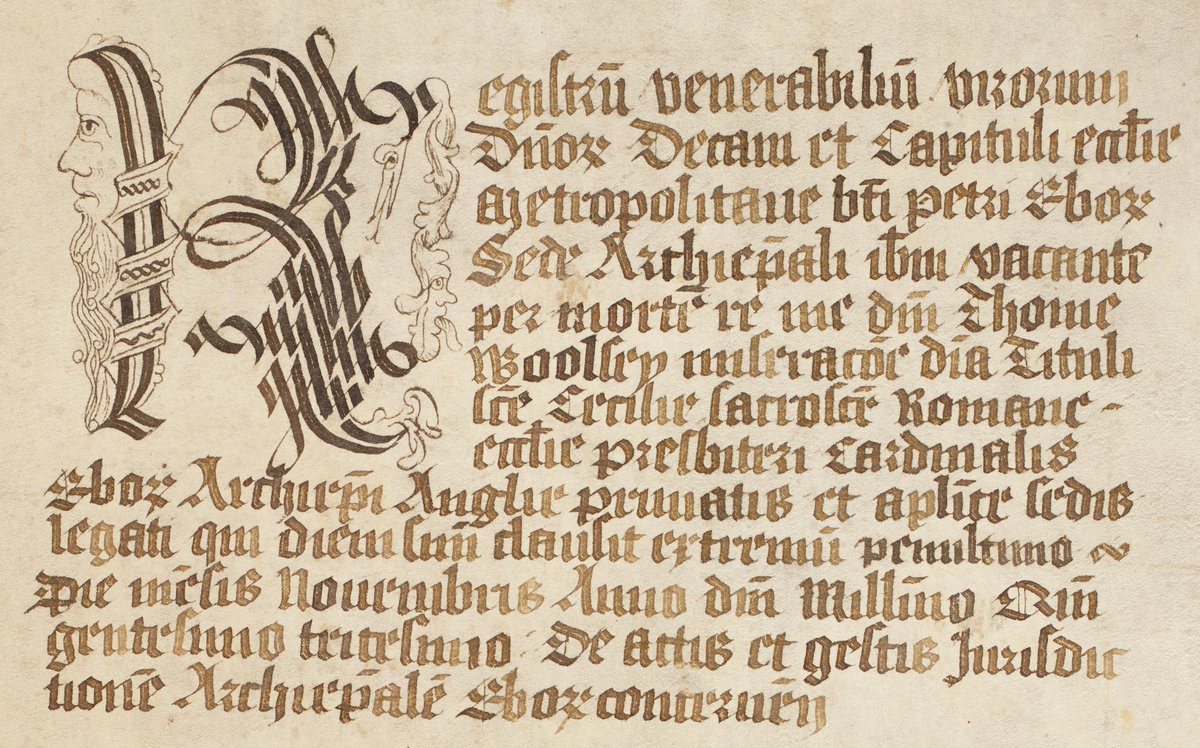 Registrū venerabiliū virorum
Dn̄orꝝ Decani et Capituli eccl̄ie
Metropolitane bt̄i Petri Eborꝝ
Sede Archiep̄ali ibm̄ vacante
per mortē re me dn̄i Thome
Woolsey miseracōe dīa Tituli
sc̄te Cecilie sacrosc̄te Romane
eccl̄ie presbiteri Cardinalis
Eborꝝ Archiep̄i Anglie primatis et apl̄ice sedis
legati qui diem suū clausit extremū penultimo
Die mēsis Nouembris Anno dn̄i Millīmo Quin
gentesimo tricesimo De actis et gestis Jurisdic
tionē Archiep̄alē Eborꝝ concernēn